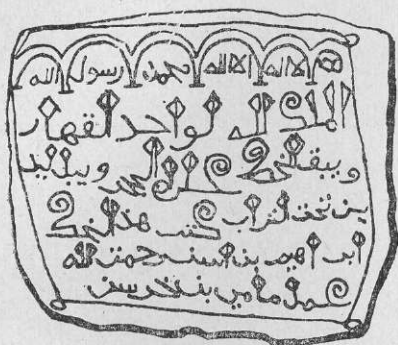 لا اله الا الله محمد رسول الله
الملك لله لواحد القهار
ويبقا لخط على الحجر ويبلا ليد
ين تحت لتراب كتب هذا لخط
ابراهيم بن رحمت الله
عمل مامي بن